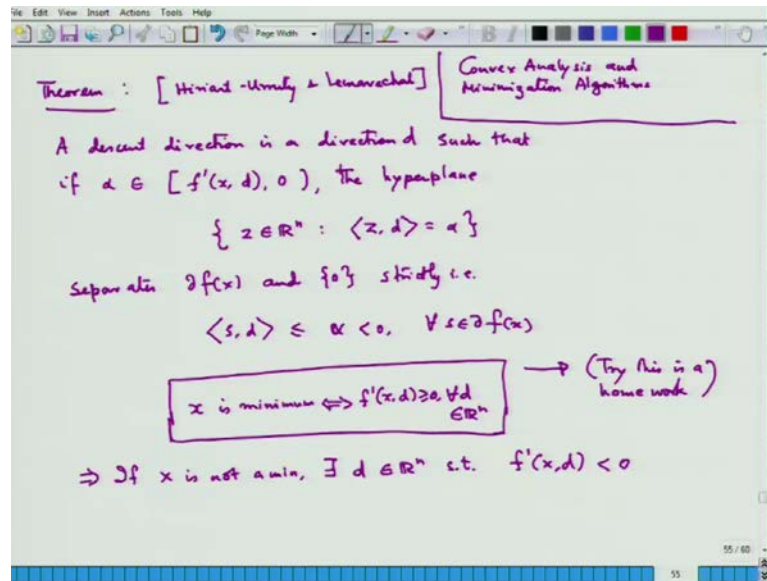 File Edit View Insert Actions Tools Help
Page Width
Theorem : [Hiriart-Urruty & Lemarechal]
Convex Analysis and
Minimization Algorithms
A descent direction is a direction d such that
if α ∈ [f'(x, d), 0), the hyperplane
{ z ∈ ℝⁿ : ⟨z, d⟩ = α }
separates ∂f(x) and {0} strictly i.e.
⟨s, d⟩ ≤ α < 0, ∀ s ∈ ∂f(x)
x is minimum ⟺ f'(x, d) ≥ 0, ∀ d
∈ ℝⁿ
→ (Try this is a
home work)
⇒ If x is not a min, ∃ d ∈ ℝⁿ s.t. f'(x, d) < 0
55 / 60
55